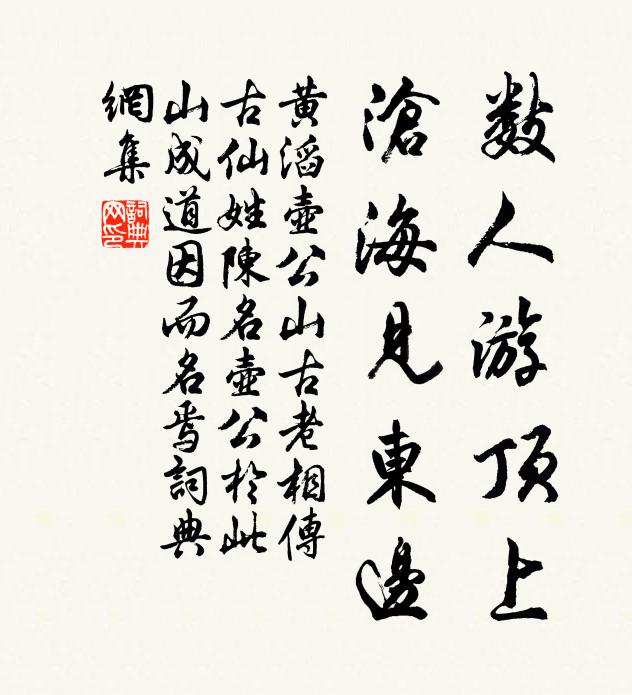 数人游頂上
滄海見東邊
黄滔壺公山古老相傳
古仙姓陳名壺公於此
山成道因而名焉詞典
網集
詞典網印